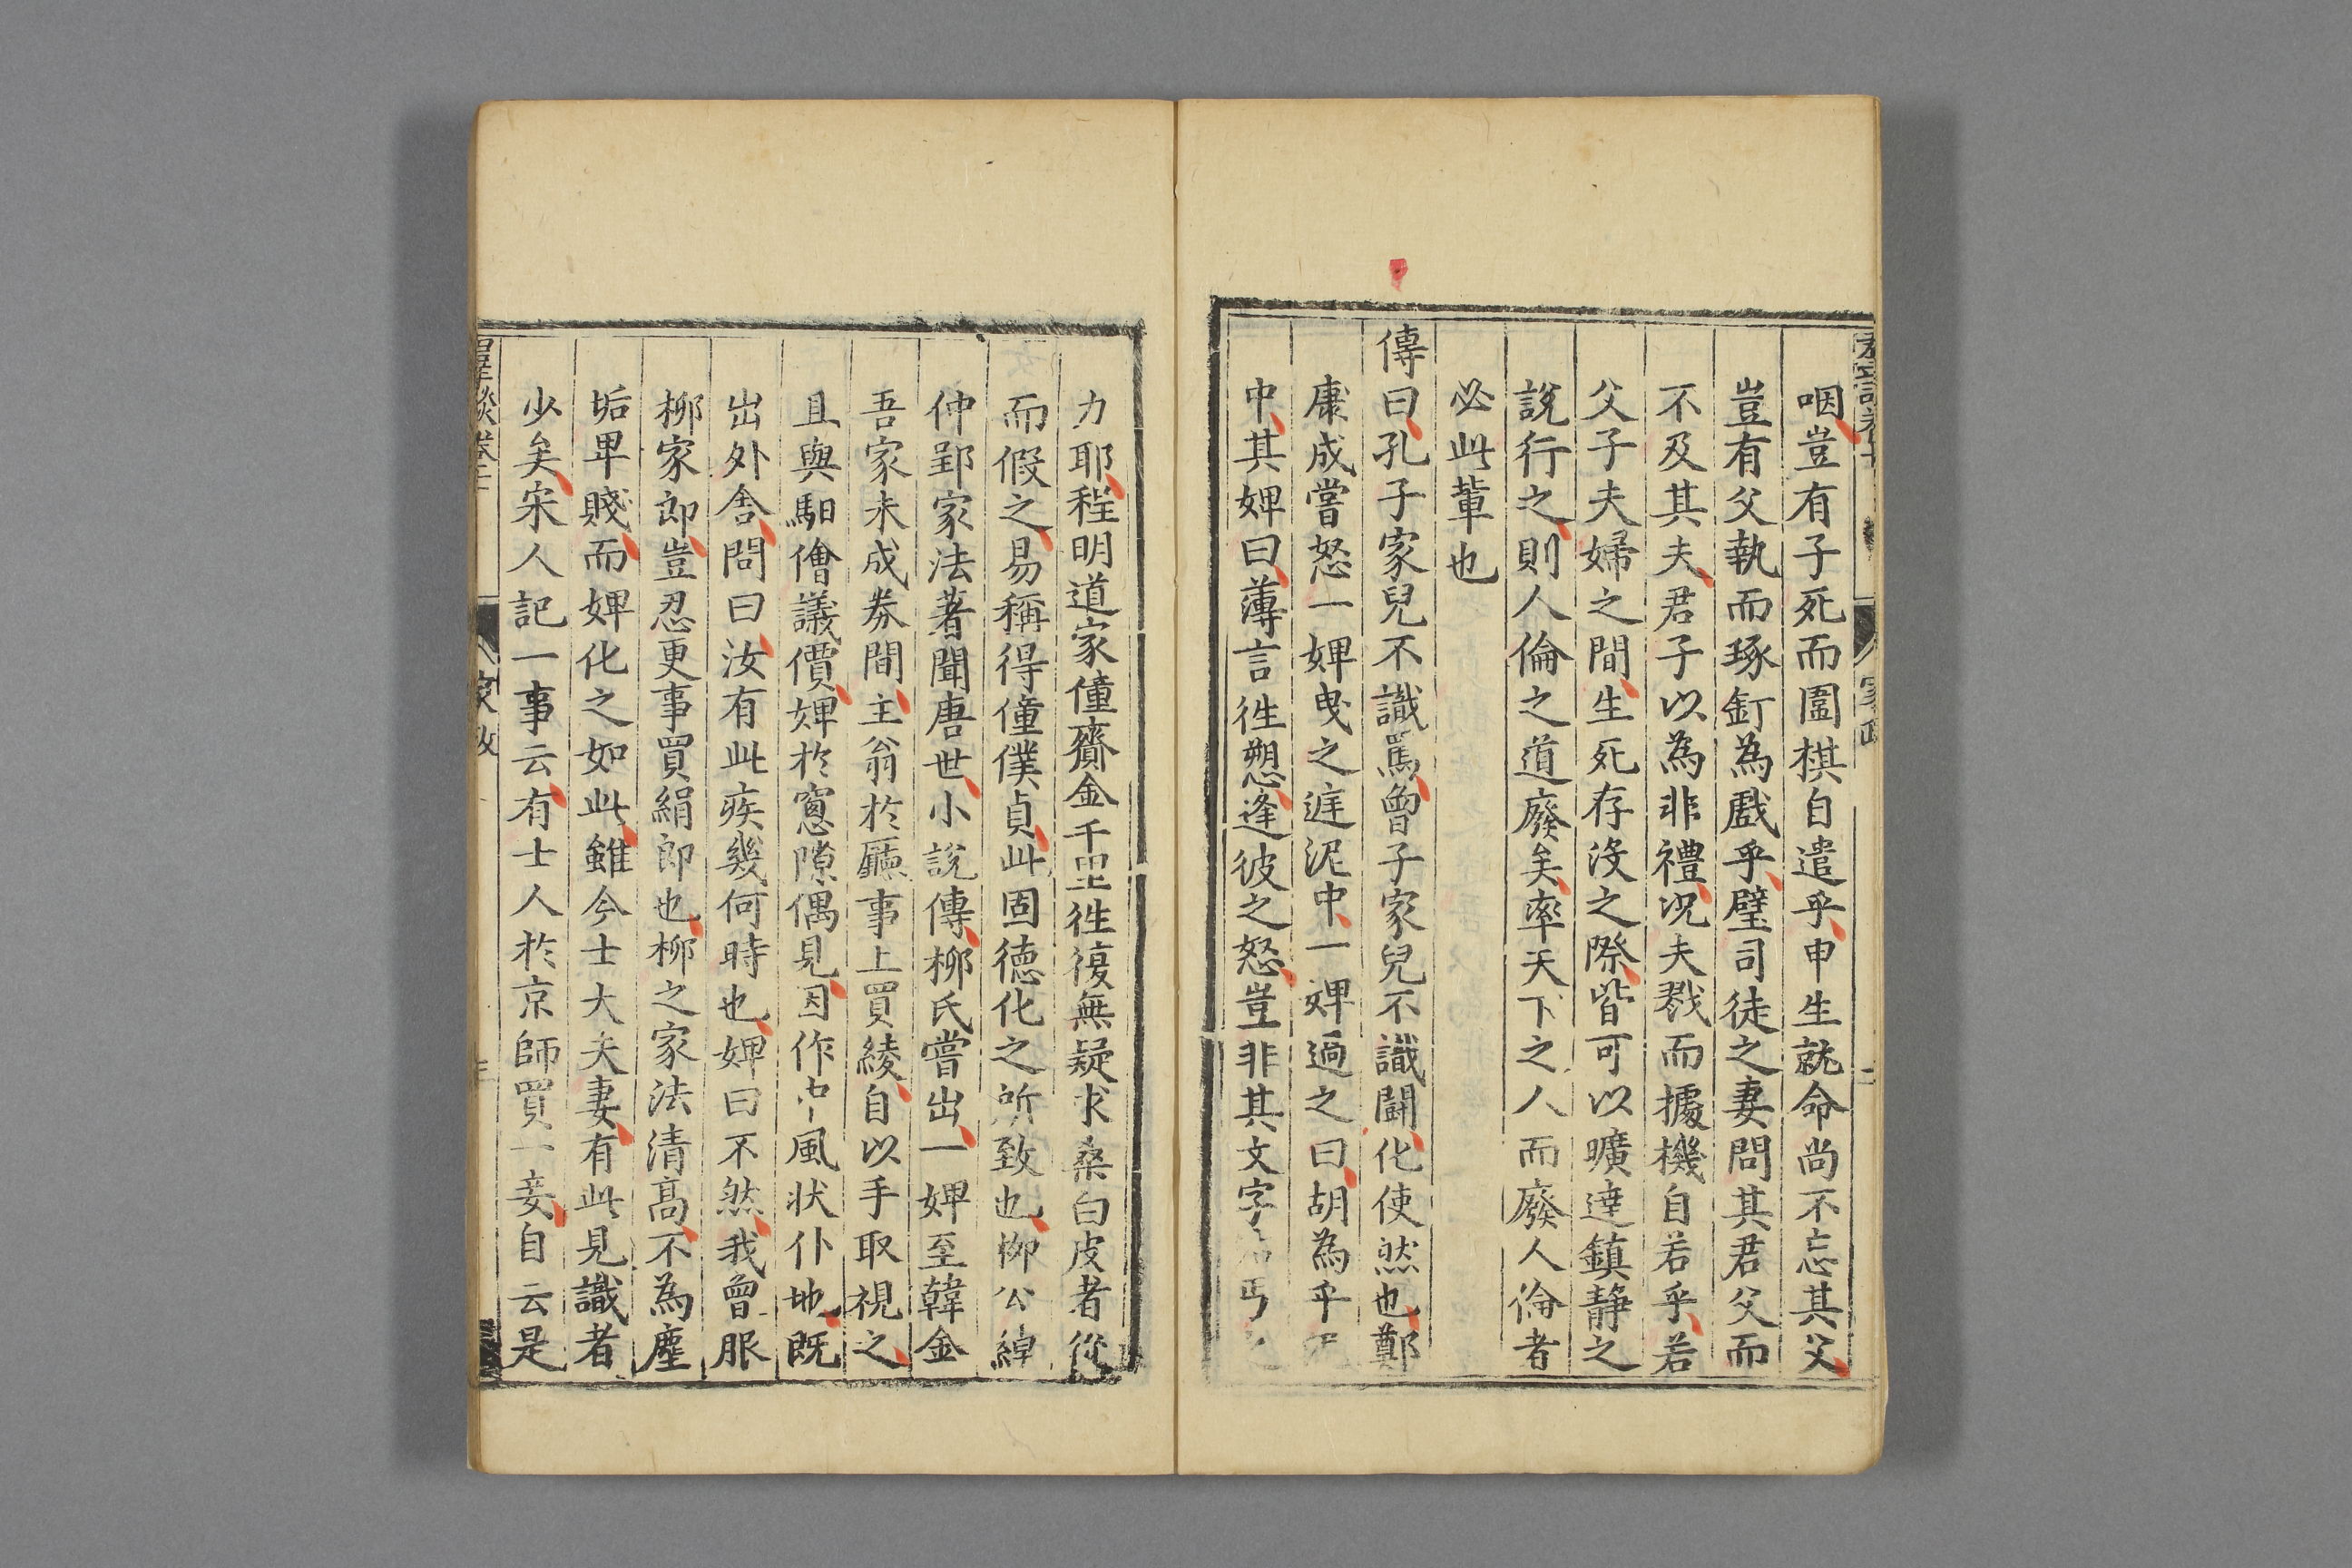 咽豈有子死而圍棋自遣乎申生就命尚不忘其父
豈有父執而琢釘為戲乎璧司徒之妻問其君父而
不及其夫君子以為非禮況夫戮而據機自若乎若
父子夫婦之間生死存沒之際皆可以曠達鎮靜之
說行之則人倫之道廢矣率天下之人而廢人倫者
必此輩也
傳曰孔子家兒不識罵曾子家兒不識鬪化使然也鄭
康成嘗怒一婢曳之庭泥中一婢過之曰胡為乎泥
中其婢曰薄言徃愬逢彼之怒豈非其文字
力耶程明道家僮齎金千里徃復無疑求桑白皮者從
而假之易稱得僮僕貞此固德化之所致也柳公綽
仲郢家法著聞唐世小說傳柳氏嘗出一婢至韓金
吾家未成券間主翁於廳事上買綾自以手取視之
且與馹儈議價婢於窻隙偶見因作中風状仆地既
出外舍問曰汝有此疾幾何時也婢曰不然我曾服
柳家郎豈忍更事買絹郎也柳之家法清高不為塵
垢卑賤而婢化之如此雖今士大夫妻有此見識者
少矣宋人記一事云有士人於京師買一妾自云是
家政